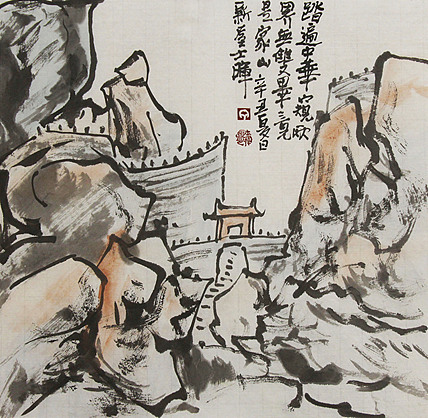 踏遍中華窺
界無雙畢竟
是家山辛丑夏日
新士